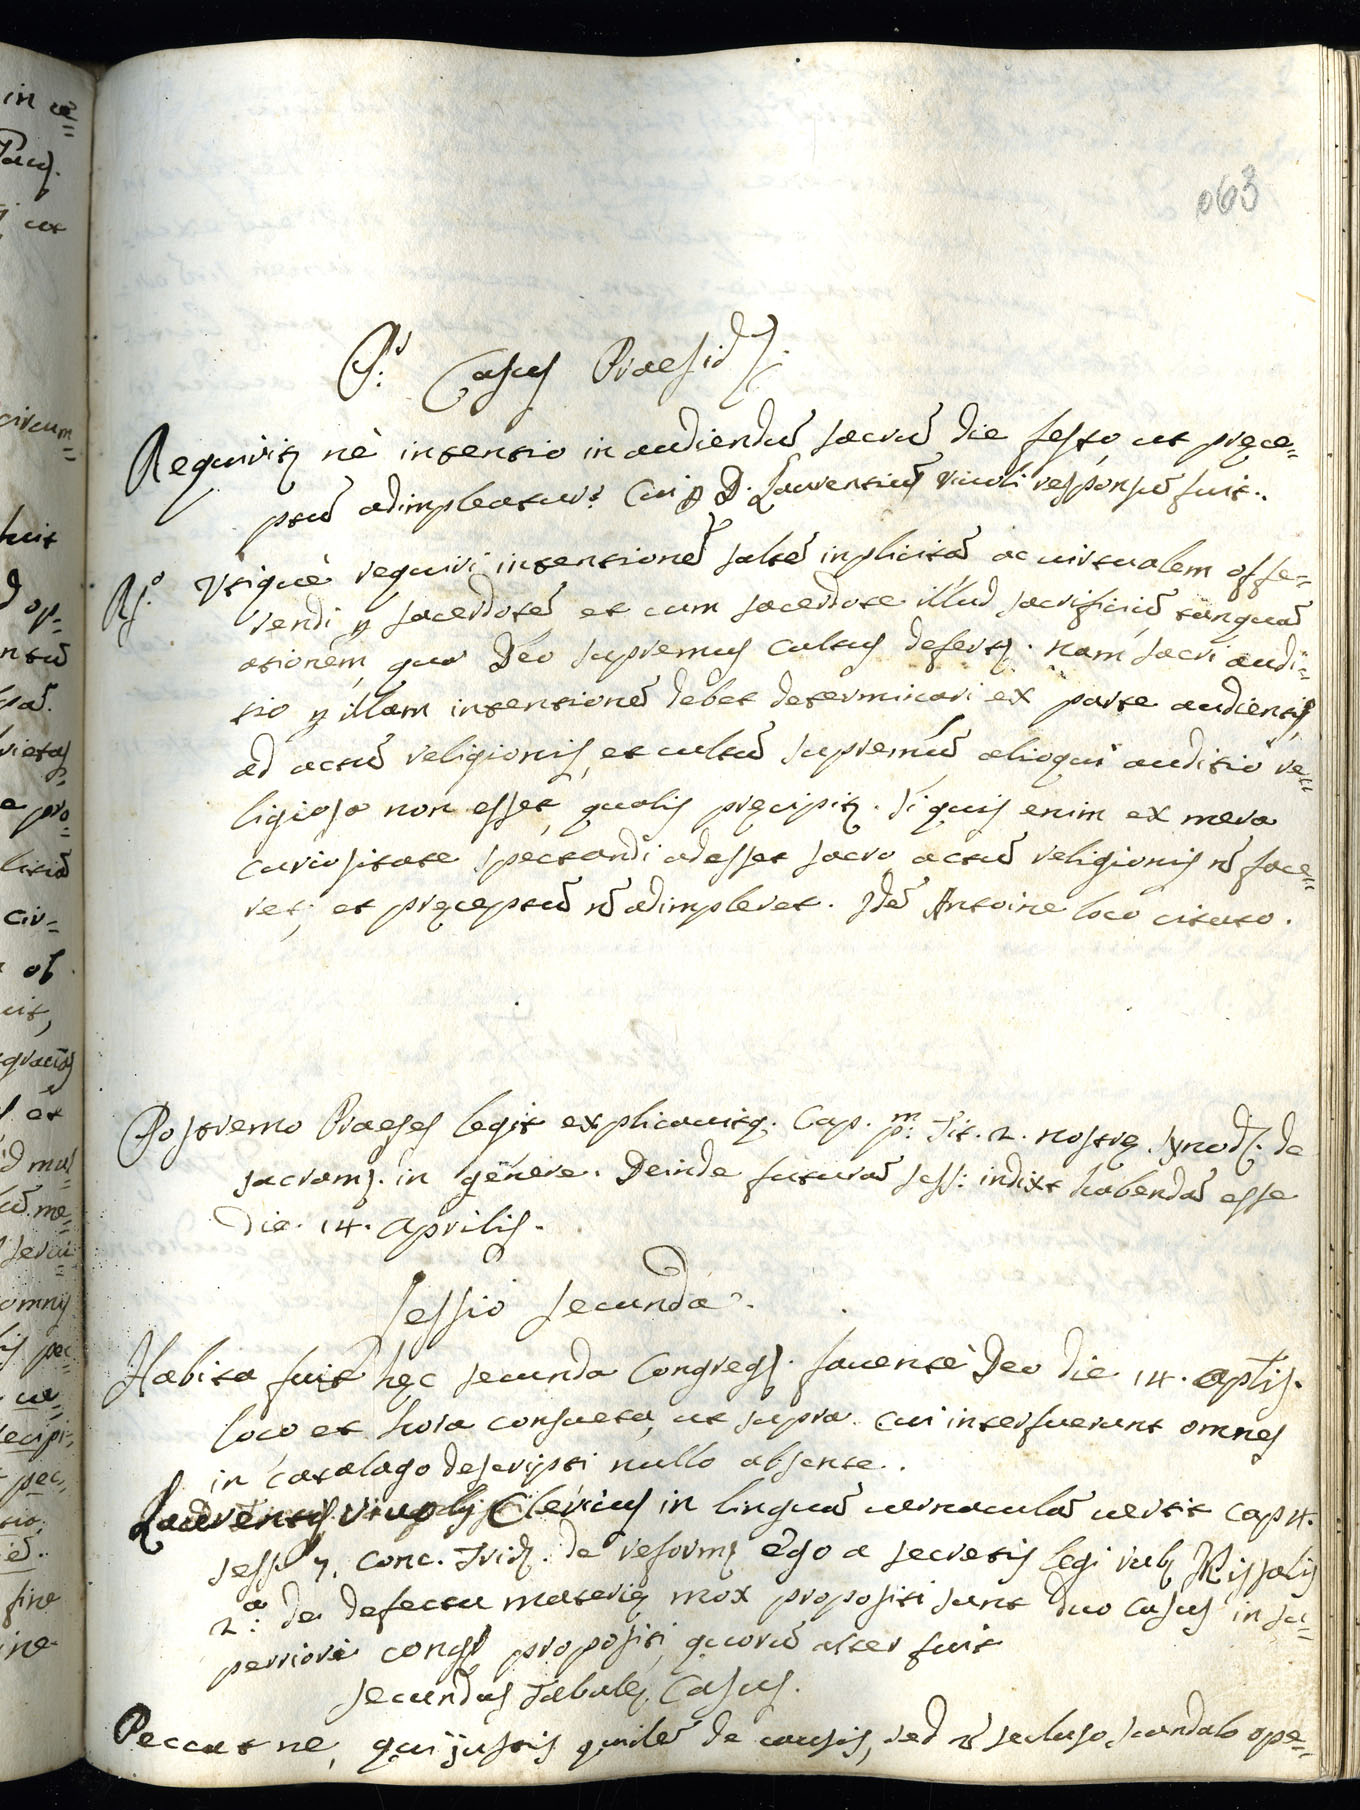 063
P.s Casus Praesid.
Requirit. nè intensio in audiendū sacrū die festo, ut pręce=
ptū adimpleatur? Cui D. Laurentiū Vivoli responsū fuit..
R.o Vtiquè requiri intensionē saltē inplicitā ac uirtualem offe=
rendi p sacerdotē et cum sacerdote illud sacrificiū tanquā
ationem, qua Deo supremus cultus defert. nam sacri audi=
tio p illam intensionē debet determinari ex parte audientis,
ad actū religionis, et cultū supremū alioqui auditio re=
ligiosa non esset, qualis pręcipit. si quis enim ex mera
curiositate spectandi adesset sacro actū religionis nō face=
ret, et pręceptū nō adimpleret. Idē Antoine loco citato.
Postremo Praeses legit explicauitq. Cap. p.m Tit. 2. nostrę. synod. de
sacram. in genere. Deinde futurā sess: indixt habendā esse
die. 14. Aprilis.
Sessio secunda.
Habita fuit hęc secunda Congreg. fauente Deo die 14. Aplis.
loco et hora consueta, ut supra. cui interfuerunt omnes
in catalago descripti nullo absente.
Laurentius Clericus in linguā uernaculā uertit cap 4.
sess 7. Conc. Trid. de reform ego a secretis legi rub Missalis
2.a de defectu materię mox propositi sunt duo casus in su=
periori cong propositi, quorū alter fuit
secundus Tabulę Casus.
Peccat ne, qui justis quidē de causis, sed nō secluso scandalo ope=
in
ut
circum=
huit
op=
ntū
rietas
pro=
litiā
cir=
ob
uit,
et
me=
serui
omnis
ecipi=
fine